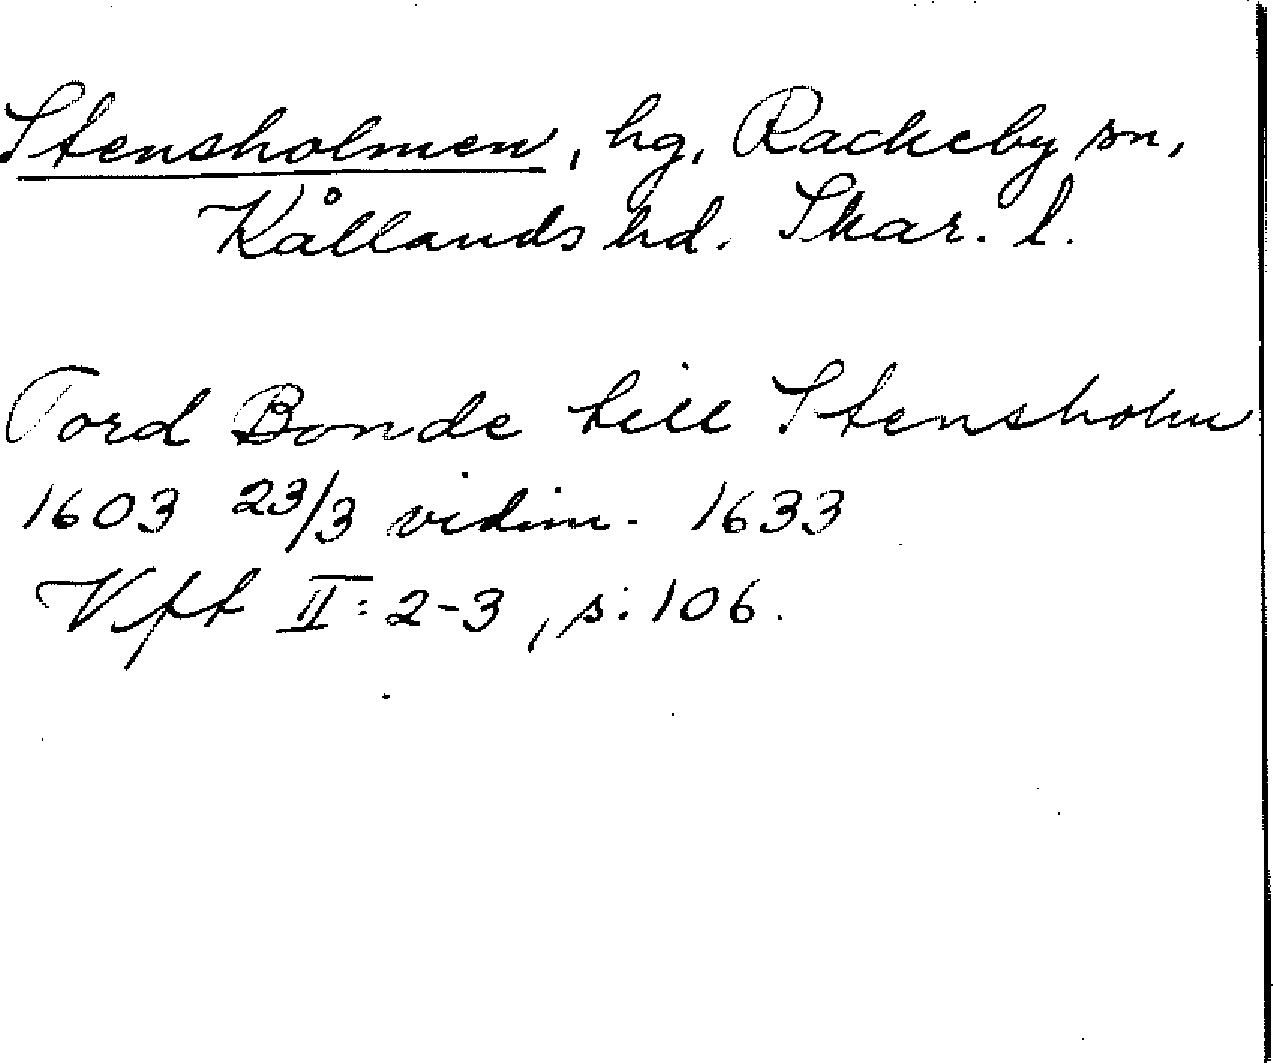 Stensholmen, hg, Rackeby sn,
Kållands hd. Skar. l.
Tord Bonde till Stensholm
1603 23/3 vidim. 1633
Vft II: 2-3, s: 106.